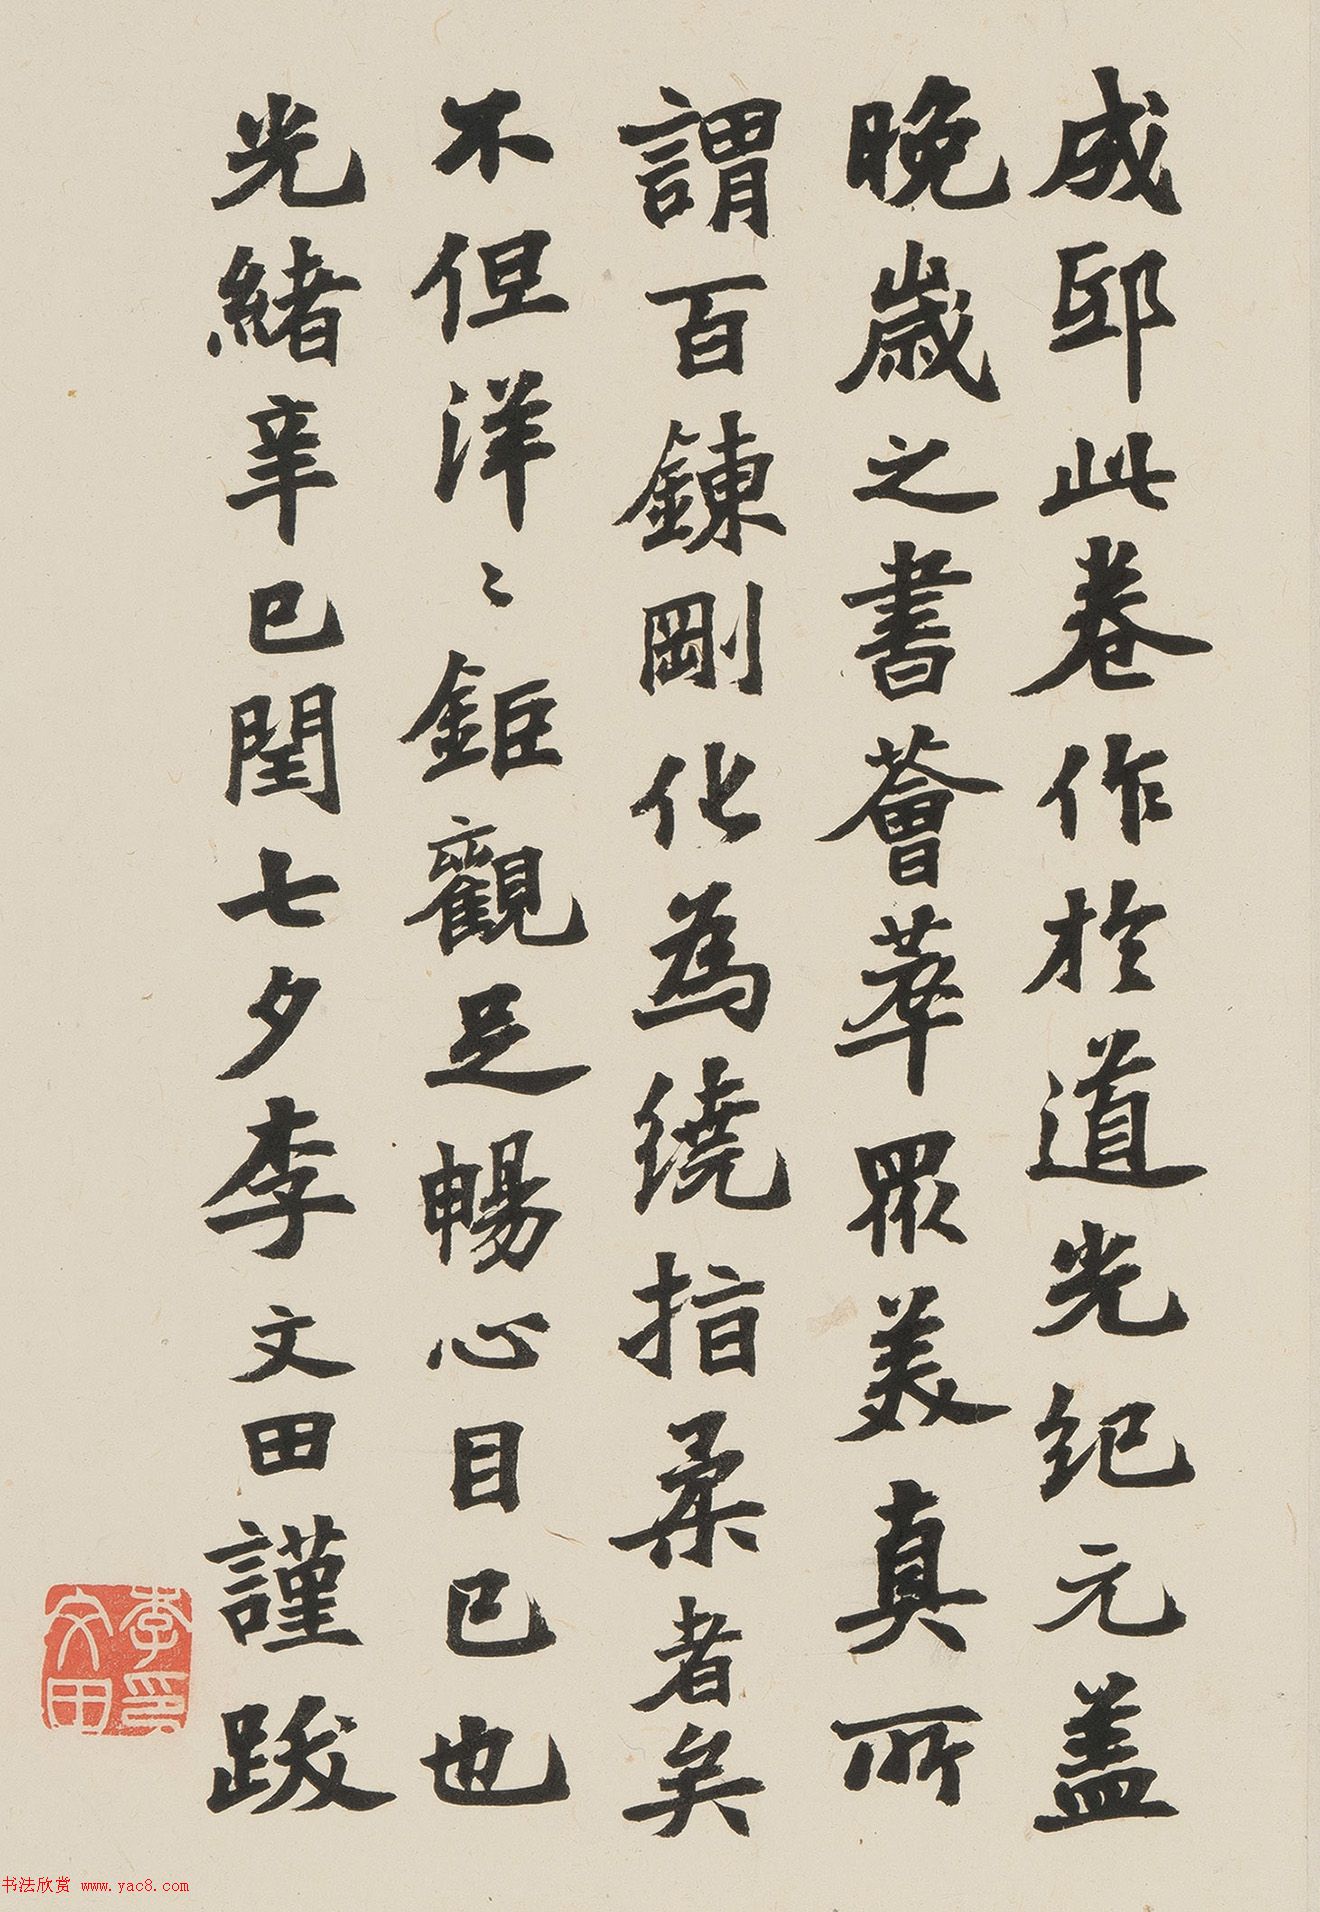 成邱此卷作於道光紀元蓋
晚歲之書薈萃眾美真所
謂百鍊剛化為繞指柔者矣
不但洋〻鉅觀足暢心目已也
光緒辛巳閏七夕李文田謹跋
李文田印
书法欣赏 www.yac8.com